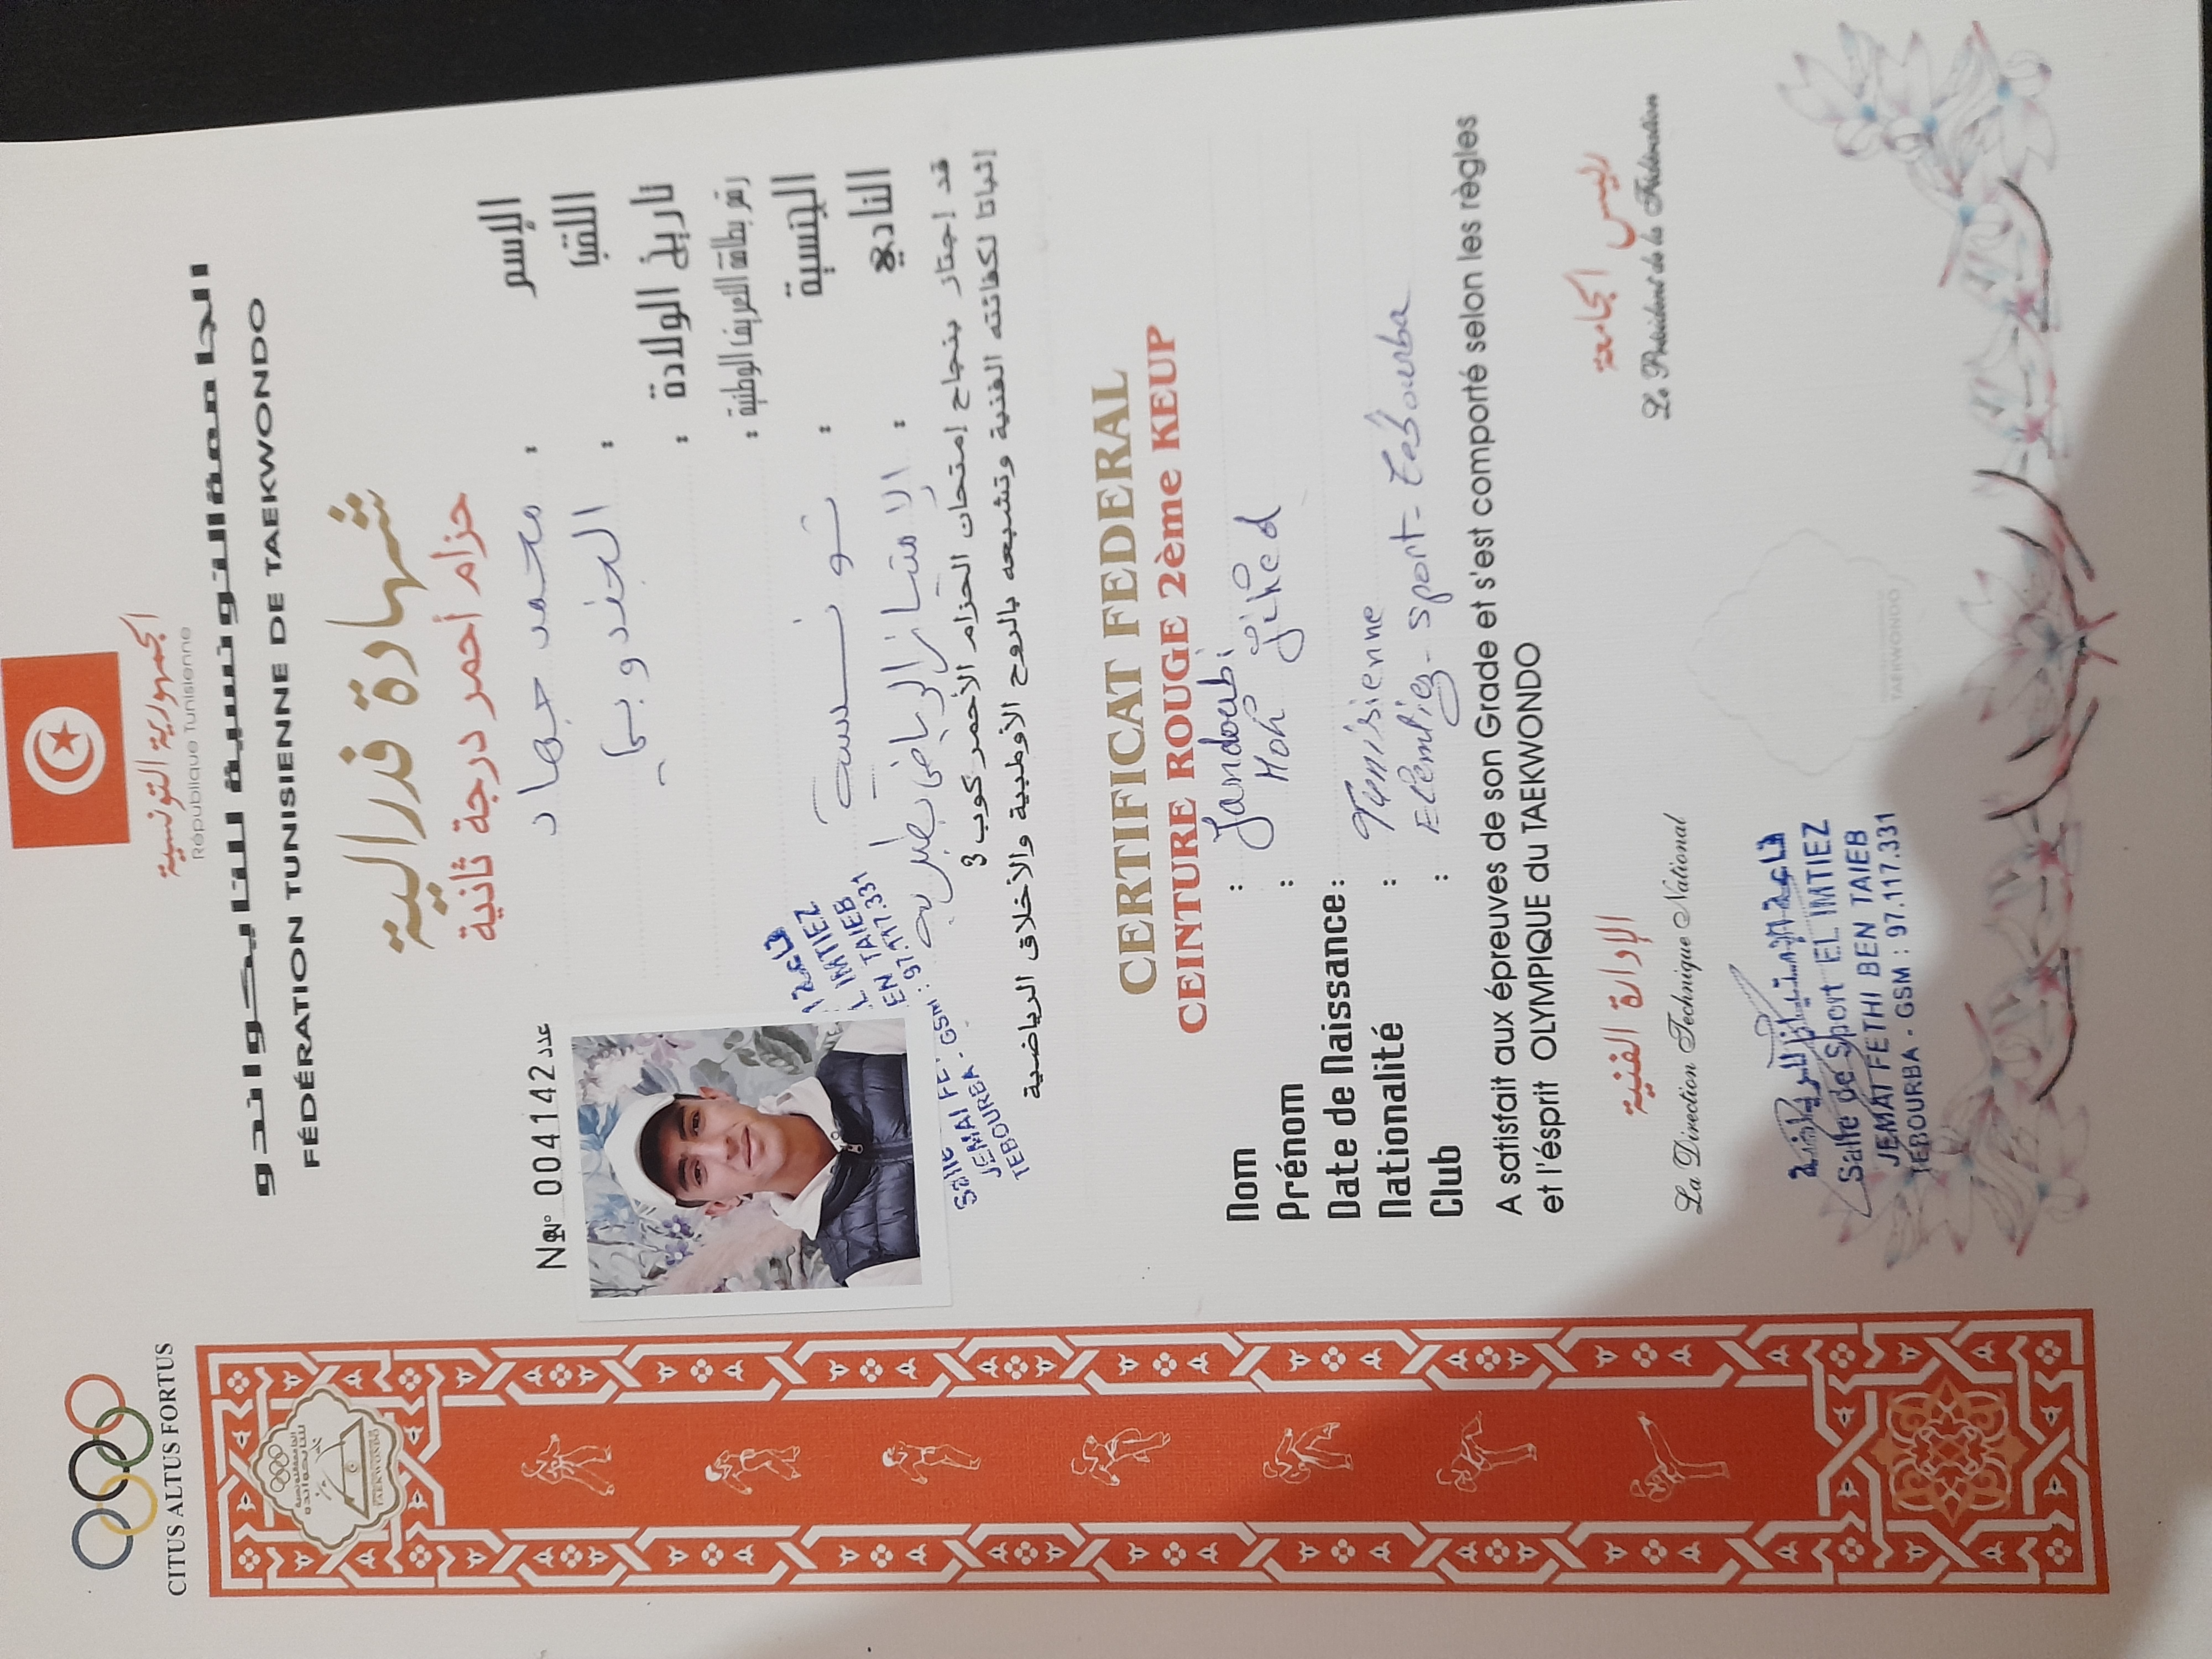 CITUS ALTUS FORTUS
الجمهورية التونسية
République Tunisienne
الجامعة التونسية للتايكواندو
FÉDÉRATION TUNISIENNE DE TAEKWONDO
شهادة فدرالية
حزام أحمر درجة ثانية
N° 004142 عدد
الإسم : محمد جهاد
اللقب : الجندوبي
تاريخ الولادة :
رقم بطاقة التعريف الوطنية :
الجنسية : تونسية
النادي : الامتياز الرياضي بطبربة
قد إجتاز بنجاح إمتحان الحزام الأحمر كوب 3
إثباتا لكفائته الفنية وتشبعه بالروح الأولمبية والأخلاق الرياضية
L IMTIEZ
EN TAIEB
Salle
JEMAI FE
TEBOURBA - GSM : 97.117.331
CERTIFICAT FEDERAL
CEINTURE ROUGE 2ème KEUP
Nom : Jandoubi
Prénom : Moh Jihed
Date de Naissance :
Nationalité : Tunisienne
Club : Elemtiez-sport-Tebourba
A satisfait aux épreuves de son Grade et s'est comporté selon les règles
et l'ésprit OLYMPIQUE du TAEKWONDO
الإدارة الفنية
La Direction Technique National
رئيس الجامعة
Le Président de la Fédération
قاعة الامتياز للرياضة
Salle de Sport EL IMTIEZ
JEMAI FETHI BEN TAIEB
TEBOURBA - GSM : 97.117.331
TAEKWONDO